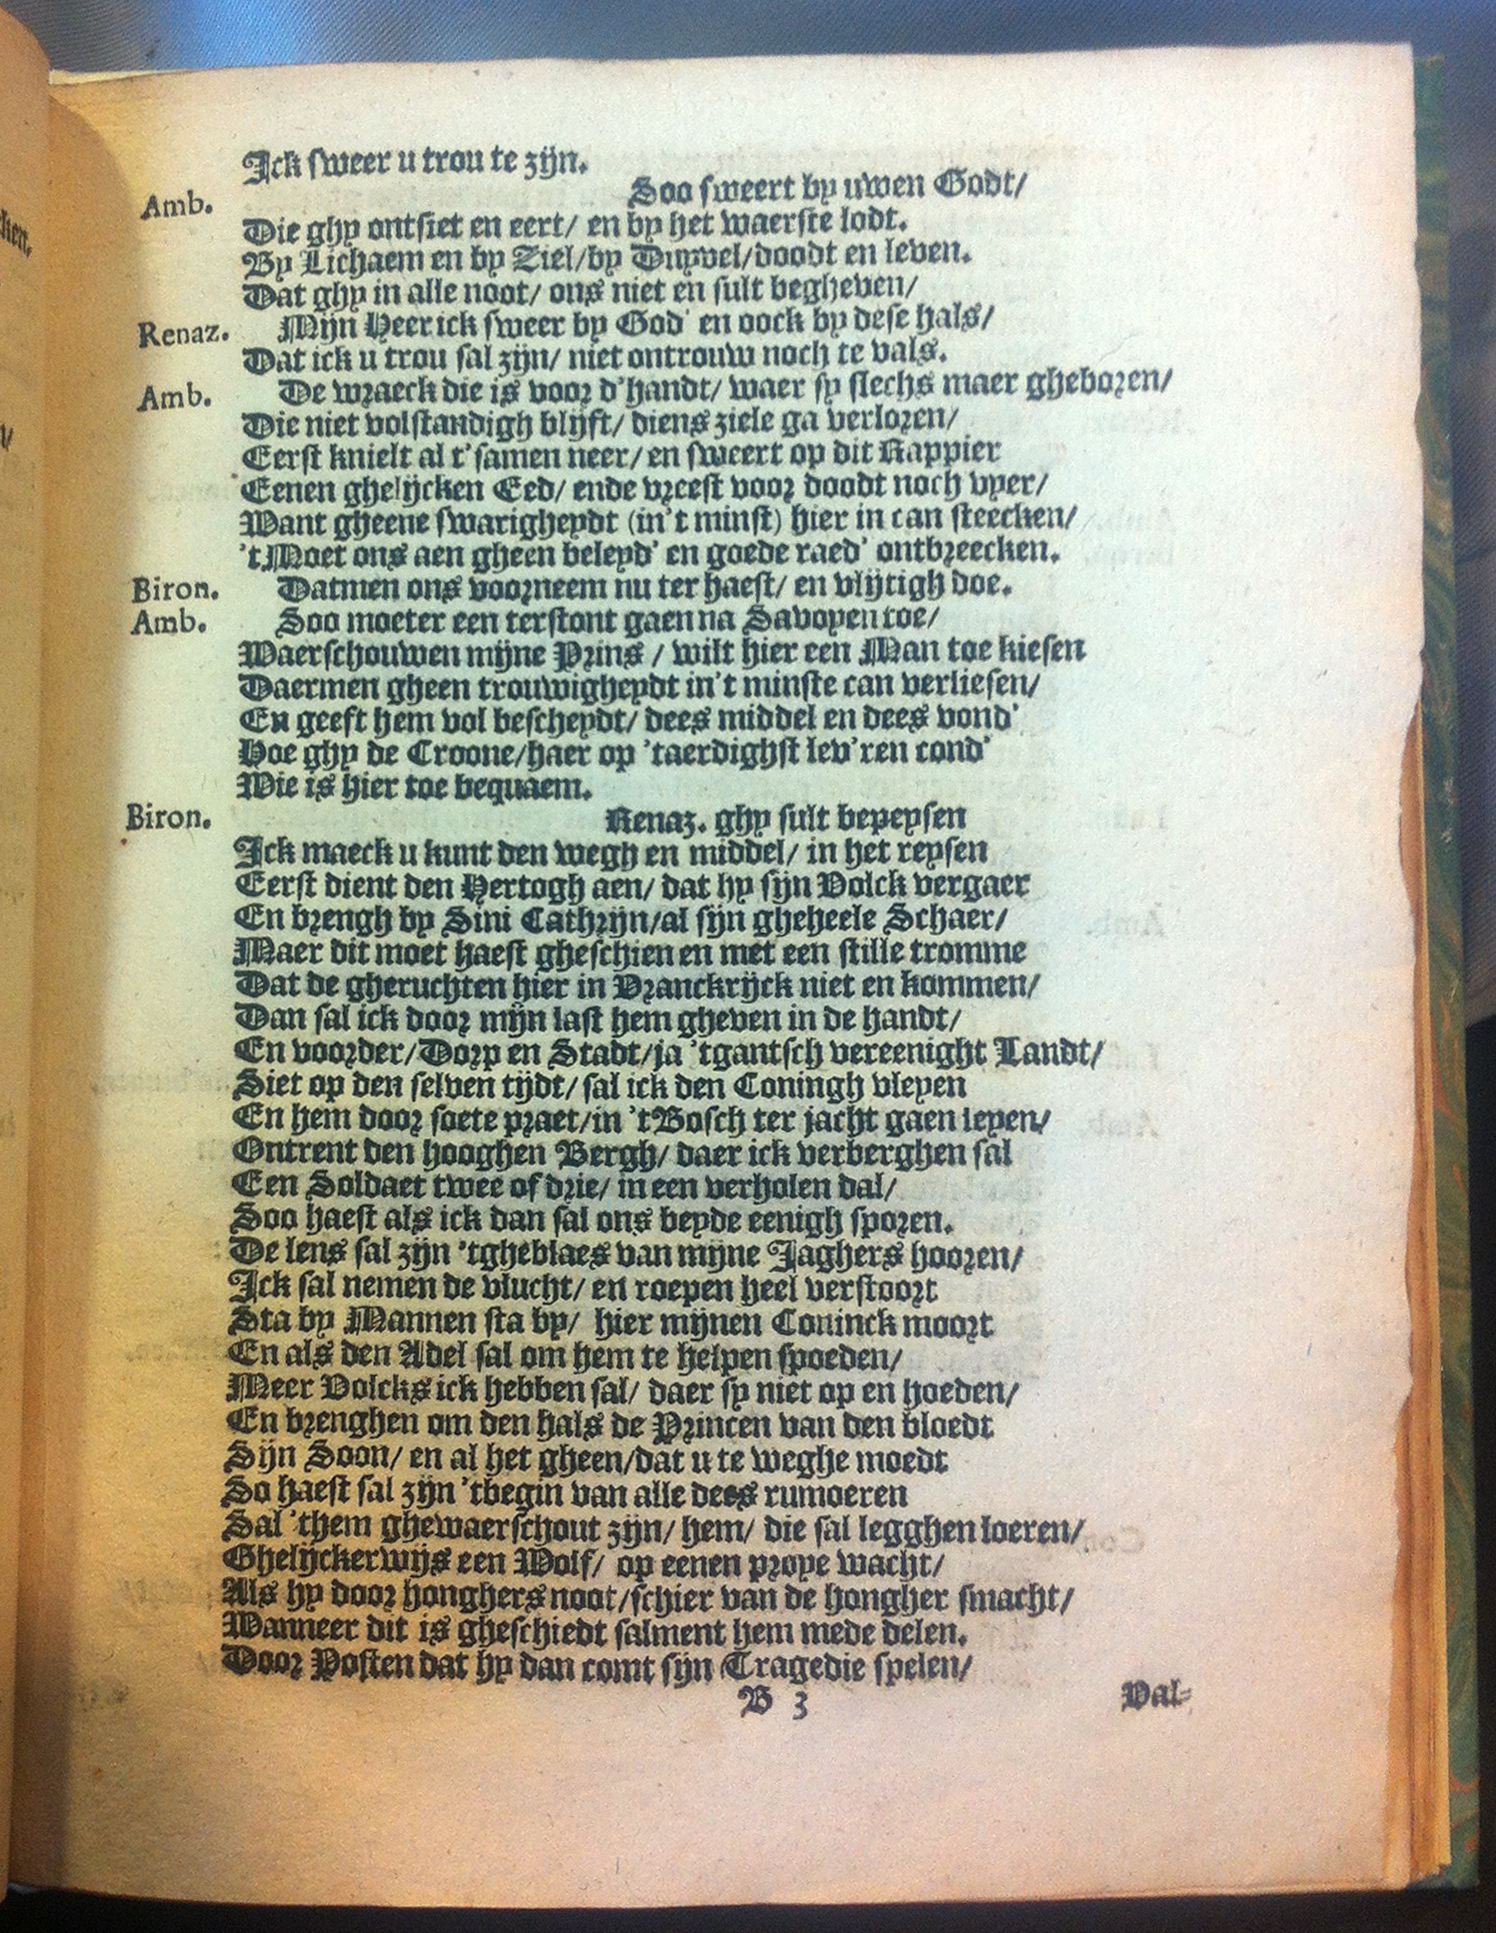 Ick sweer u trou te zijn.
Amb. Soo sweert by uwen Godt/
Die ghy ontsiet en eert/ en by het waerste lodt.
By Lichaem en by Ziel/by Duyvel/doodt en leven.
Dat ghy in alle noot/ ons niet en sult begheven/
Renaz. Mijn Heer ick sweer by God' en oock by dese hals/
Dat ick u trou sal zijn/ niet ontrouw noch te vals.
Amb. De wraeck die is voor d'handt/ waer sy slechs maer gheboren/
Die niet volstandigh blijft/ diens ziele ga verloren/
Eerst knielt al t'samen neer/ en sweert op dit Rappier
Eenen ghelijcken Eed/ ende vreest voor doodt noch vyer/
Want gheene swarigheydt (in't minst) hier in can steecken/
't Moet ons aen gheen beleyd' en goede raed' ontbreecken.
Biron. Datmen ons voorneem nu ter haest/ en vlijtigh doe.
Amb. Soo moeter een terstont gaen na Savoyen toe/
Waerschouwen mijne Prins / wilt hier een Man toe kiesen
Daermen gheen trouwigheydt in't minste can verliesen/
En geeft hem vol bescheydt/ dees middel en dees vond'
Hoe ghy de Croone/haer op 'taerdighst lev'ren cond'
Wie is hier toe bequaem.
Biron. Renaz. ghy sult bepeysen
Ick maeck u kunt den wegh en middel/ in het reysen
Eerst dient den Hertogh aen/ dat hy sijn Volck vergaer
En brengh by Sini Cathrijn/al sijn gheheele Schaer/
Maer dit moet haest gheschien en met een stille tromme
Dat de gheruchten hier in Vranckrijck niet en kommen/
Dan sal ick door mijn last hem gheven in de handt/
En voorder/Dorp en Stadt/ja 'tgantsch vereenight Landt/
Siet op den selven tijdt/ sal ick den Coningh vleyen
En hem door soete praet/in 'tBosch ter jacht gaen leyen/
Ontrent den hooghen Bergh/ daer ick verberghen sal
Een Soldaet twee of drie/ in een verholen dal/
Soo haest als ick dan sal ons beyde eenigh sporen.
De lens sal zijn 'tgheblaes van mijne Jaghers hooren/
Ick sal nemen de vlucht/ en roepen heel verstoort
Sta by Mannen sta by/ hier mijnen Coninck moort
En als den Adel sal om hem te helpen spoeden/
Meer Volcks ick hebben sal/ daer sy niet op en hoeden/
En brenghen om den hals de Princen van den bloedt
Sijn Soon/ en al het gheen/dat u te weghe moedt
So haest sal zijn 'tbegin van alle dees rumoeren
Sal 'them ghewaerschout zijn/ hem/ die sal legghen loeren/
Ghelijckerwijs een Wolf/ op eenen proye wacht/
Als hy door honghers noot/schier van de hongher smacht/
Wanneer dit is gheschiedt salment hem mede delen.
Door Posten dat hy dan comt sijn Tragedie spelen/
B 3 Val-